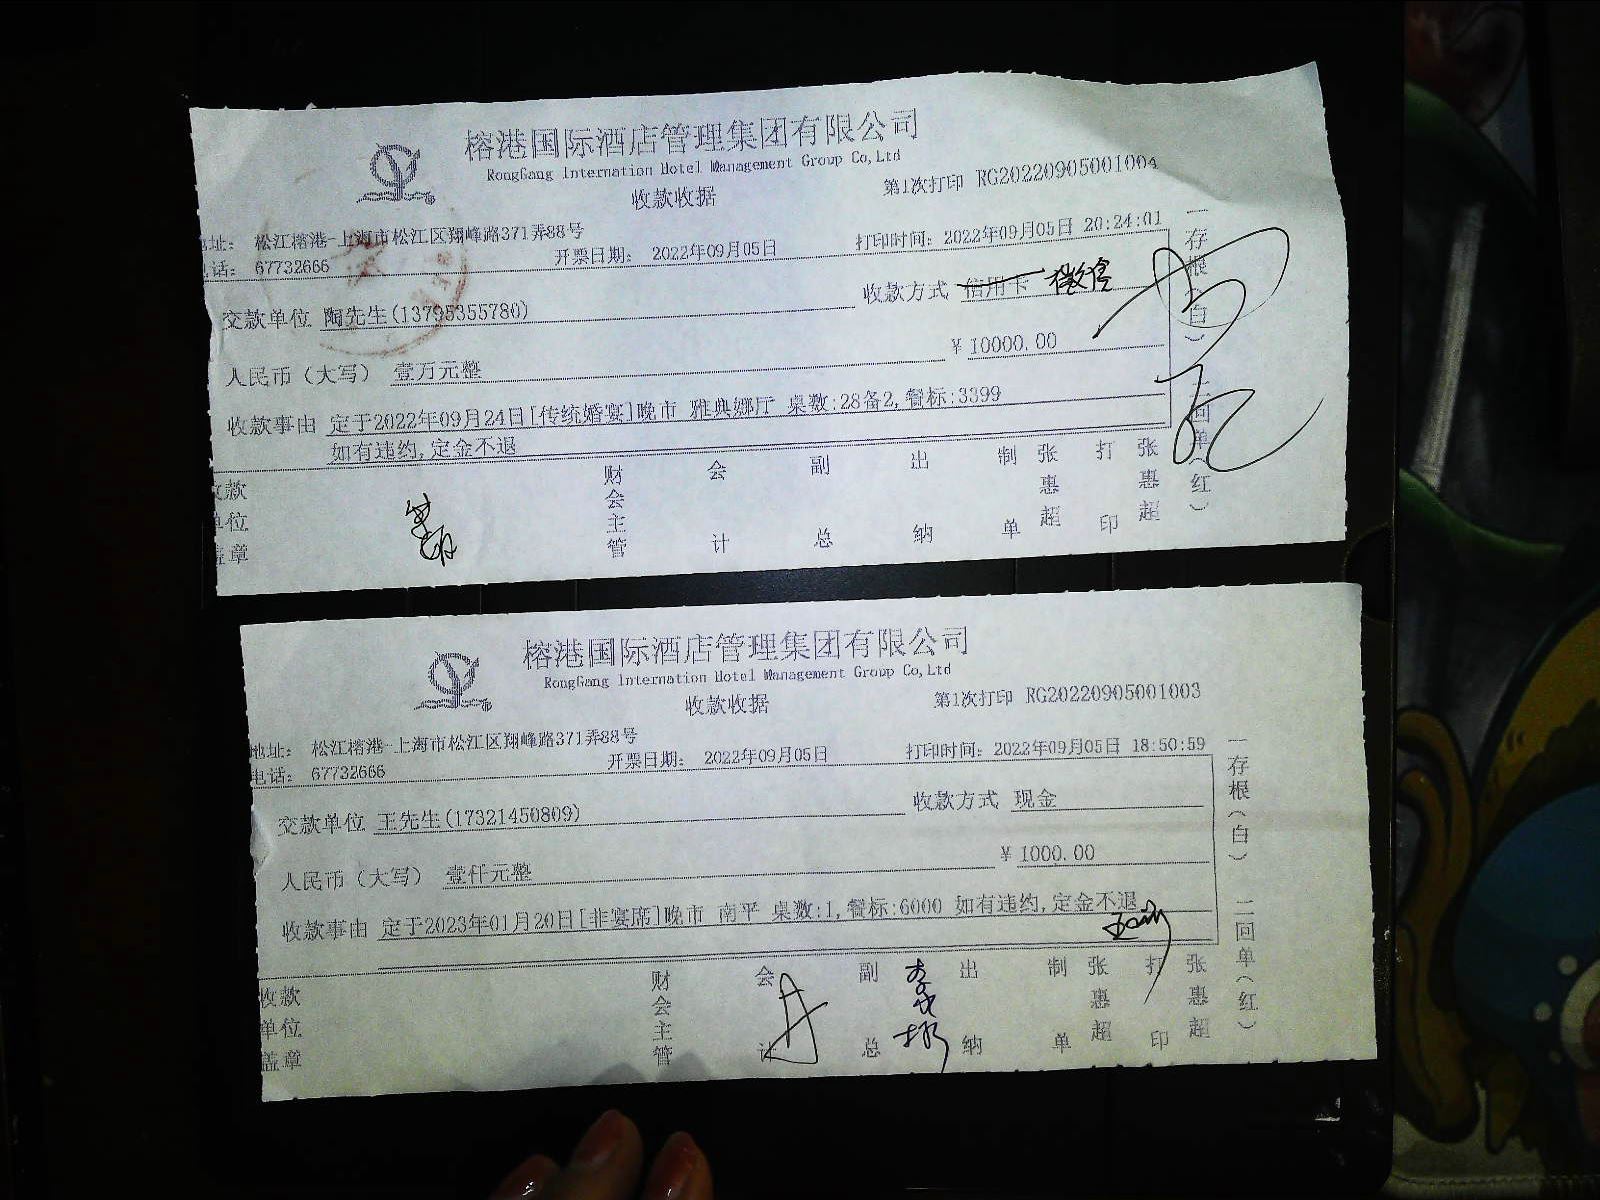 榕港国际酒店管理集团有限公司
RongGang Internation Hotel Management Group Co,Ltd
收款收据
第1次打印 RG20220905001004
地址: 松江榕港-上海市松江区翔峰路371弄88号
电话: 67732666
开票日期: 2022年09月05日
打印时间: 2022年09月05日 20:24:01
交款单位 陶先生(13795355780)
收款方式 信用卡 微信
人民币(大写) 壹万元整
¥ 10000.00
收款事由 定于2022年09月24日[传统婚宴]晚市 雅典娜厅 桌数:28备2,餐标:3399
如有违约,定金不退
收款单位盖章
财会主管
会计
副总
出纳
制单
张惠超
打印
张惠超
一存根(白) 二回单(红)
榕港国际酒店管理集团有限公司
RongGang Internation Hotel Management Group Co,Ltd
收款收据
第1次打印 RG20220905001003
地址: 松江榕港-上海市松江区翔峰路371弄88号
电话: 67732666
开票日期: 2022年09月05日
打印时间: 2022年09月05日 18:50:59
交款单位 王先生(17321450809)
收款方式 现金
人民币(大写) 壹仟元整
¥ 1000.00
收款事由 定于2023年01月20日[非宴席]晚市 南平 桌数:1,餐标:6000 如有违约,定金不退
收款单位盖章
财会主管
会计
副总
出纳
制单
张惠超
打印
张惠超
一存根(白) 二回单(红)